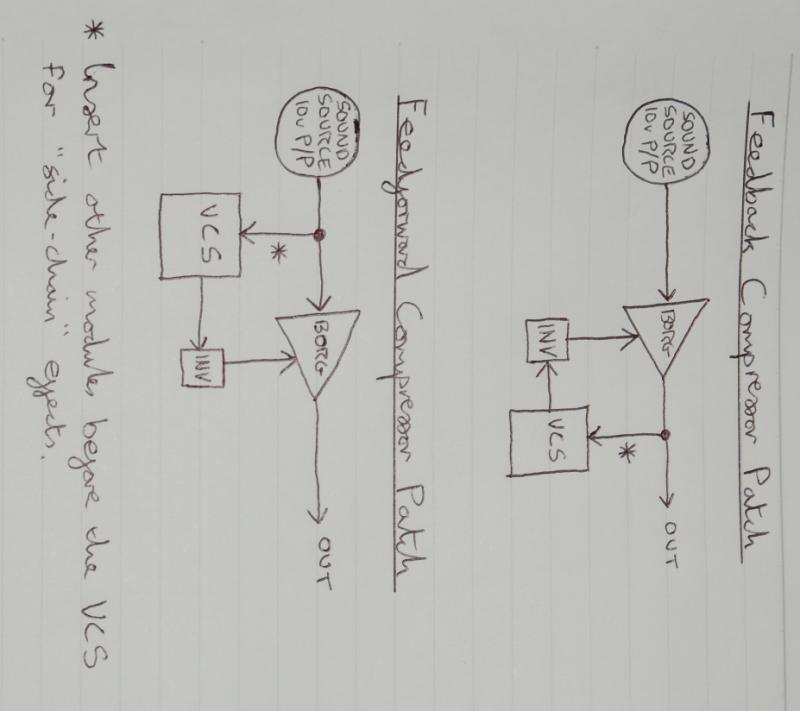 Feedback Compressor Patch
SOUND
SOURCE
10v P/P
BORG
OUT
INV
*
VCS
Feedforward Compressor Patch
SOUND
SOURCE
10v P/P
BORG
OUT
*
VCS
INV
* Insert other modules before the VCS
for "side-chain" effects.